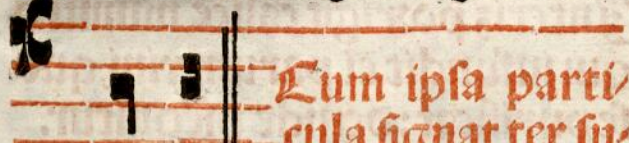 Cum ipſa parti/
cula ſignat ter ſu/